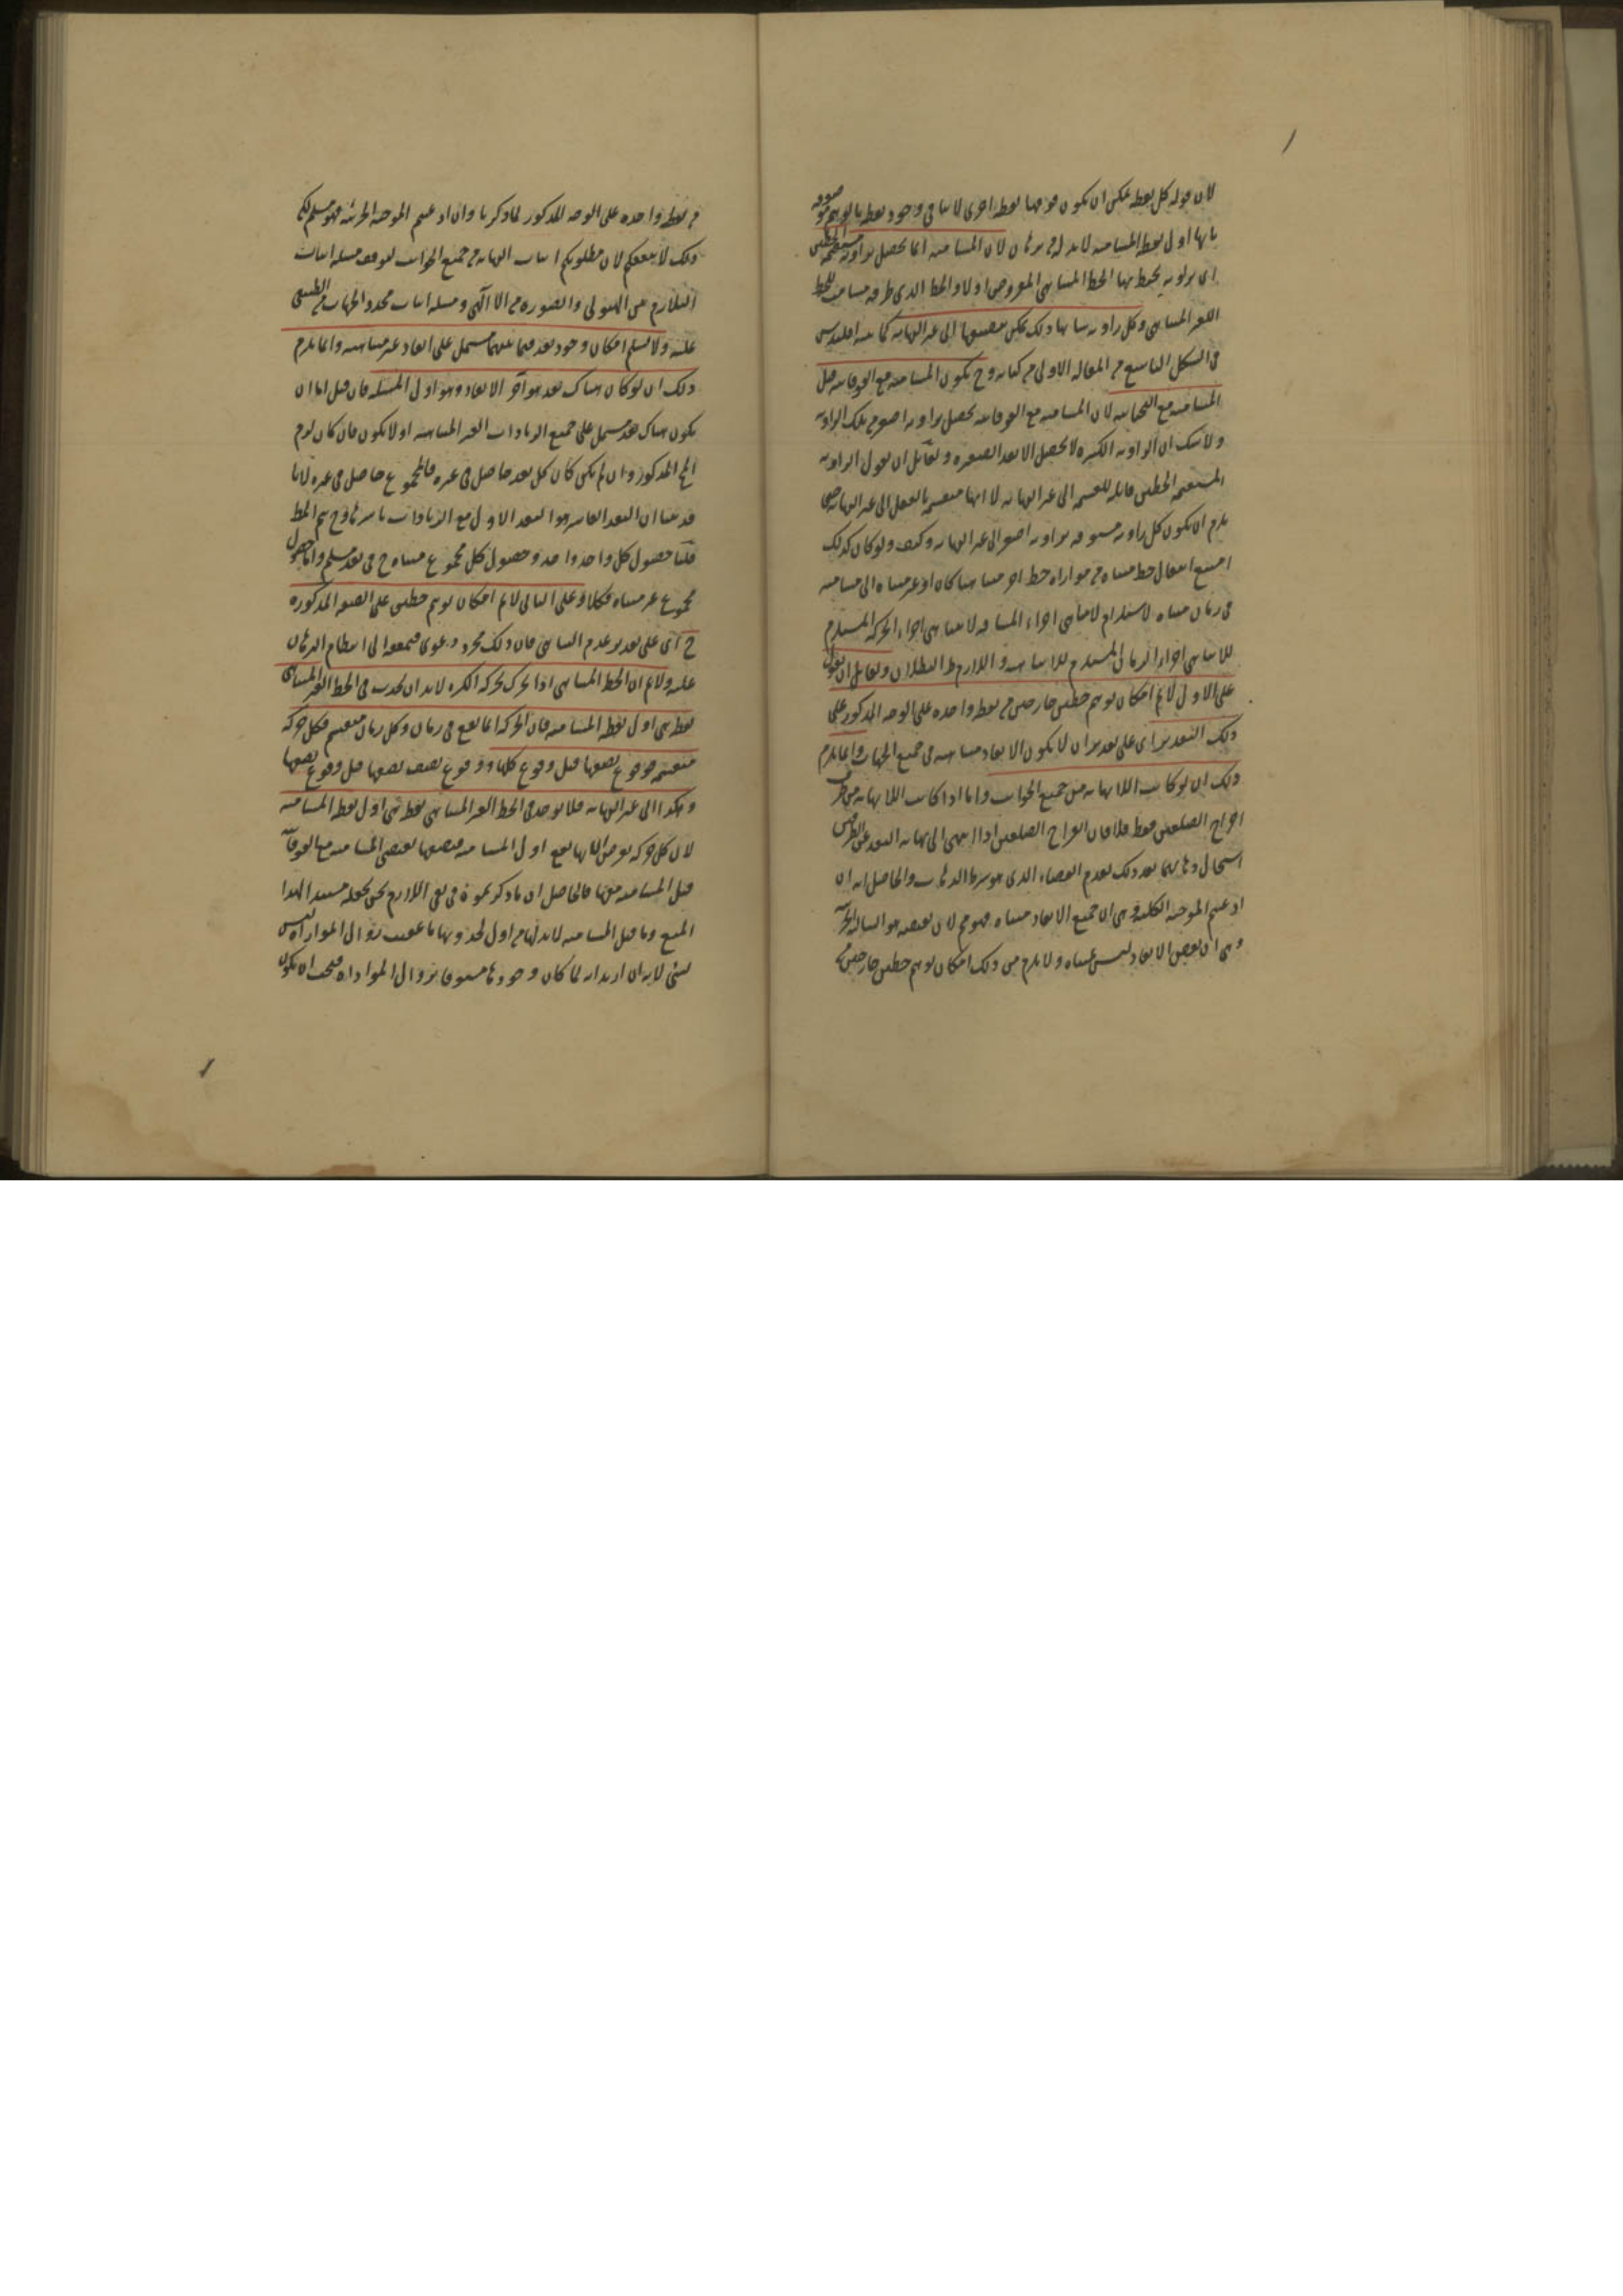 لان قوله كل نقطة يمكن ان يكون فوقها نقطة اخرى لا ينافي وجود نقطة
بانها اول نقط المسامتة لا بد له من برهان لان المسامتة انما تحصل بزاوية مستقيمة الخطين
اى بزاوية يحيط بها الخط المتناهى المفروض اولا والخط الذى طرفه مسامت للخط
الغير المتناهى وكل زاوية شانها ذلك يمكن تنصيفها الى غير النهاية كما بينه اقليدس
فى الشكل التاسع من المقالة الاولى من كتابه وح يكون المسامتة مع الفوقانية قبل
المسامتة مع التحتانية لان المسامتة مع الفوقانية تحصل بزاوية اصغر من تلك الزاوية
ولا شك ان الزاوية الكبيرة لا تحصل الا بعد الصغيرة ولقائل ان يقول الزاوية
المستقيمة الخطين قابلة للقسمة الى غير النهاية لا انها منقسمة بالفعل الى غير النهاية حتى
يلزم ان يكون كل زاوية مسبوقة بزاوية اصغر الى غير النهاية وكيف ولو كان كذلك
امتنع انتقال خط متناه من موازاة خط اخر متناهيا كان او غير متناه الى مسامتته
فى زمان متناه لاستلزام لا تناهى اجزاء المسافة لا تناهى اجزاء الحركة المستلزم
للا تناهى اجزاء الزمان المستلزم للا تناهيه واللازم ظ البطلان ولقائل ان يقول
على الاول لا نم امكان توهم خطين خارجين من نقطة واحدة على الوجه المذكور على
ذلك التقدير اى على تقدير ان لا يكون الابعاد متناهية فى جميع الجهات وانما يلزم
ذلك ان لو كانت اللا نهاية من جميع الجوانب واما اذا كانت اللا نهاية من طرف
اخراج الضلعين فقط فلا فان انفراج الضلعين اذا انتهى الى نهاية البعد عن الطرفين
استحال ذهابهما بعد ذلك لعدم الفضاء الذى هو شرط الذهاب والحاصل انه ان
ادعيتم الموجبة الكلية وهى ان جميع الابعاد متناه فهو مم لان نقيضه هو السالبة الجزئية
وهى ان بعض الابعاد ليس بمتناه ولا يلزم من ذلك امكان توهم خطين خارجين
من نقطة واحدة على الوجه المذكور لما ذكرنا وان ادعيتم الموجبة الجزئية فهو مسلم لكن
ذلك لا ينفعكم لان مطلوبكم اثبات النهاية من جميع الجوانب لتوقف مسئلة اثبات
التلازم بين الهيولى والصورة من الالهى ومسئلة اثبات محدد الجهات من الطبيعى
عليه ولا نسلم امكان وجود بعد فيما بينهما مشتمل على ابعاد غير متناهية وانما يلزم
ذلك ان لو كان هناك بعد هو آخر الابعاد وهو اول المسئلة فان قيل اما ان
يكون هناك بعد مشتمل على جميع الزيادات الغير المتناهية او لا يكون فان كان لزم
المح المذكور وان لم يكن كان كل بعد حاصل فى غيره فالمجموع حاصل فى غيره لانا
قد بينا ان البعد العاشر هو البعد الاول مع الزيادات باسرها وح يتم
قلنا حصول كل واحد واحد وحصول كل مجموع متناه ح فى بعد مسلم واما حصول
مجموع غير متناه فكلا وعلى الثانى لا نم امكان توهم خطين على الصفة المذكورة
ح اى على تقدير عدم التناهى فان ذلك مجرد دعوى
عليه ولا نم ان الخط المتناهى اذا تحرك بحركة الكرة لا بد ان يحدث فى الخط الغير المتناهى
نقطة هى اول نقط المسامتة فان الحركة انما تقع فى زمان وكل زمان منقسم فكل حركة
منقسمة فوقوع نصفها قبل وقوع كلها ووقوع نصف نصفها قبل وقوع نصفها
وهكذا الى غير النهاية فلا يوجد فى الخط الغير المتناهى نقطة هى اول نقط المسامتة
لان كل حركة يفرض انها تقع اول المسامتة فنصفها يقتضى المسامتة مع الفوقانية
قبل المسامتة معها فالحاصل ان ما ذكرتموه فى نفى اللازم نحن نجعله مستندا لهذا
المنع وما قيل المسامتة لا بد لها من اول لحدوثها عقيب زوال الموازاة ليس
بشئ لانه ان اريد انه لما كان وجودها مسبوقا بزوال الموازاة فيجب ان يكون